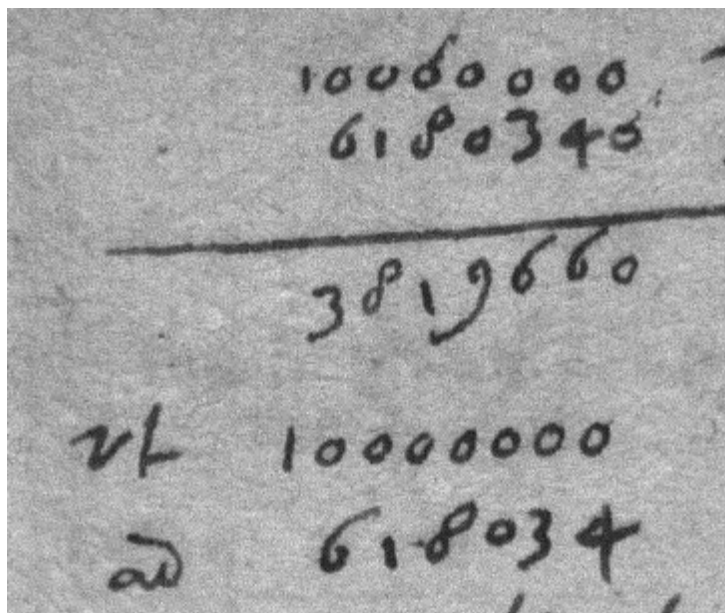 10000000
6180340
3819660
vt 10000000
ad 618034